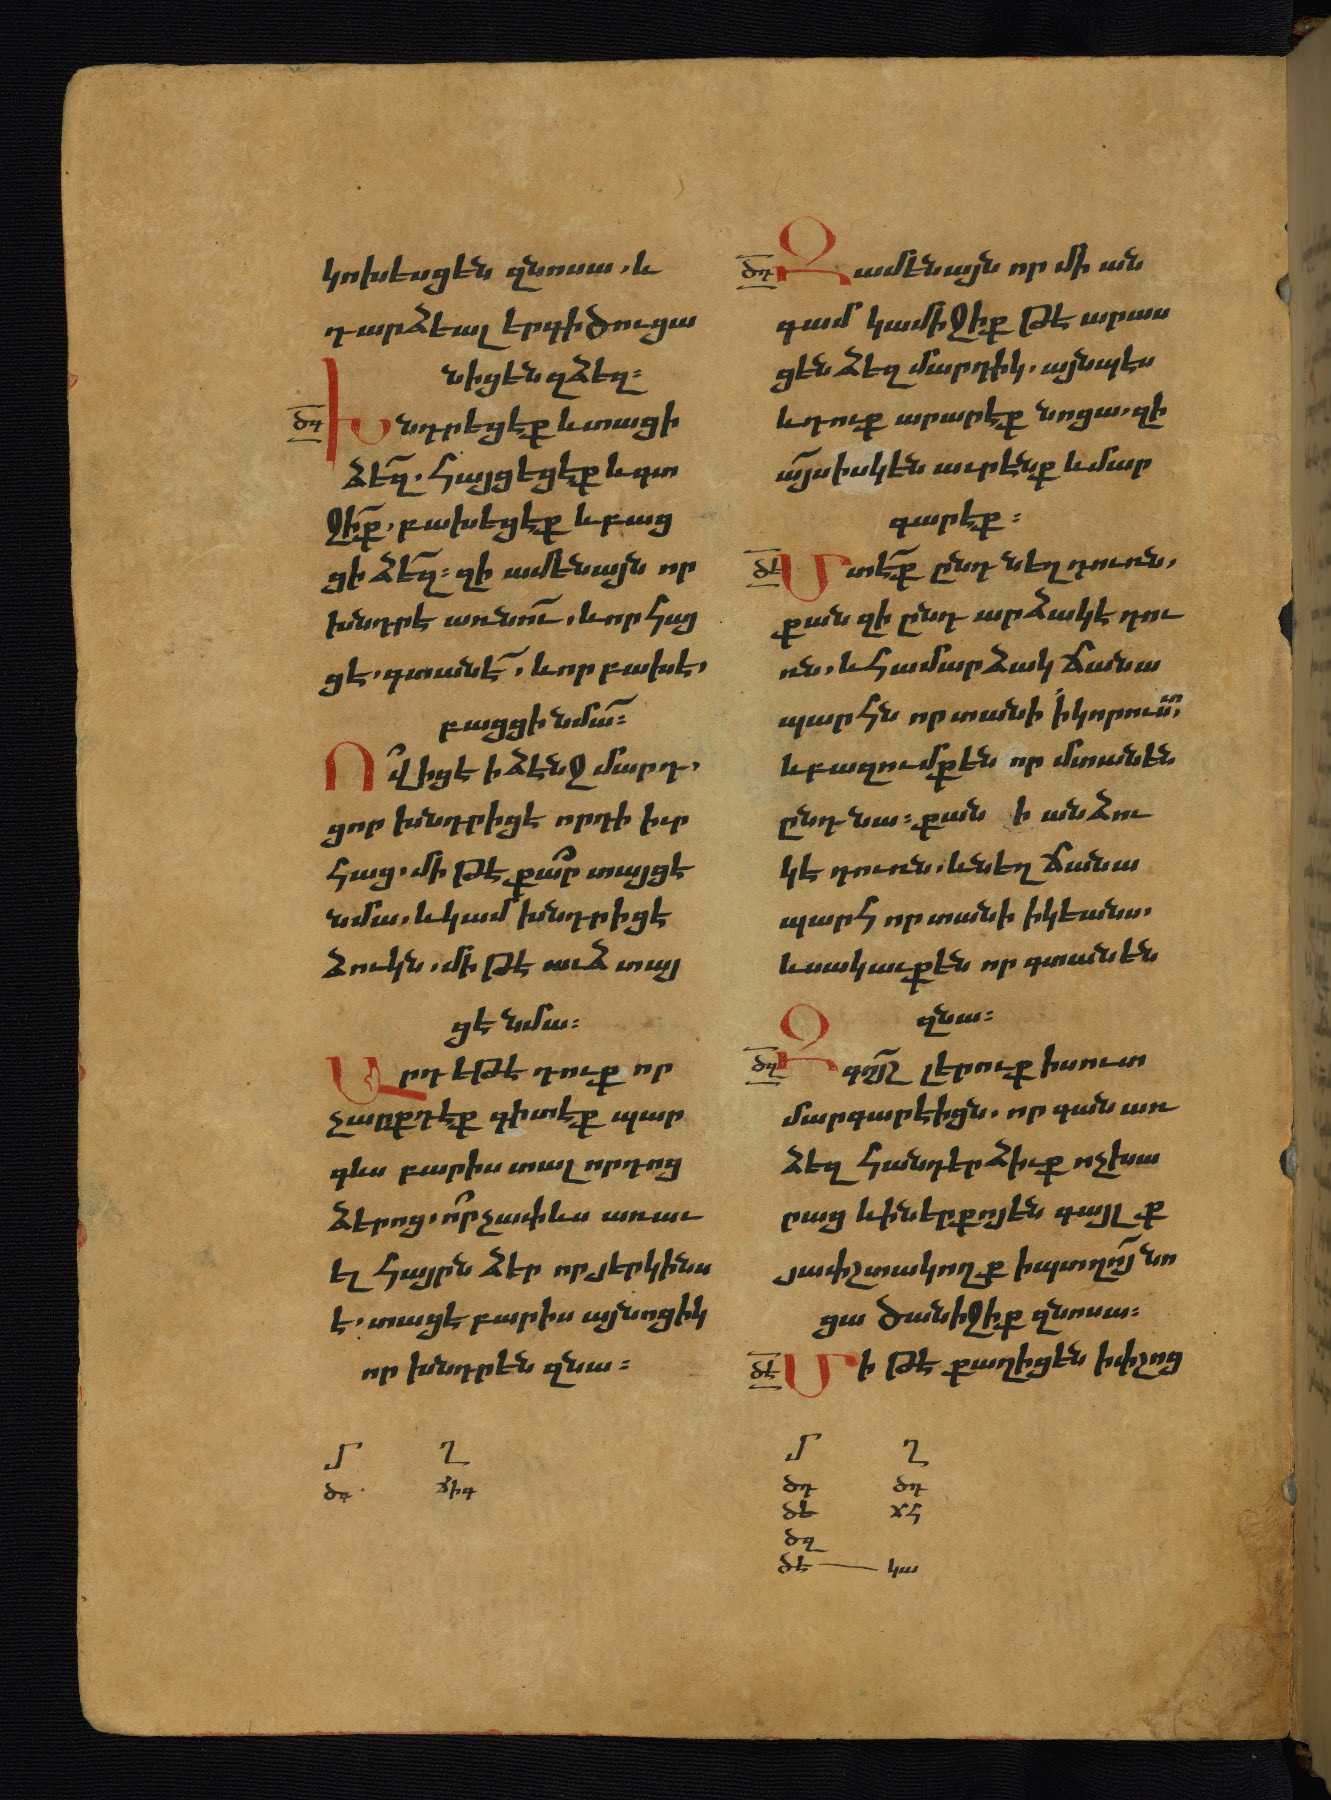 կոխեսցեն զնոսա, և
դարձեալ երգիծուցա
նիցեն զձեզ։
ծգ
Խնդրեցէք և տացի
ձե՜զ. հայցեցէք և գտ
ջի՜ք. բախեցէք և բաց
ցի ձե՜զ։ զի ամենայն որ
խնդրէ առնու՜, և որ հայ
ցէ, գտանէ՜, և որ բախէ,
բացցի նմա՜։
Ո՞վ իցէ ի ձենջ մարդ,
ցոր խնդրիցէ որդի իւր
հաց. մի թէ քա՞ր տայցէ
նմա, և կամ խնդրիցէ
ձուկն. մի թէ աւձ տայ
ցէ նմա։
Արդ եթէ դուք որ
չարքդէք գիտէք պար
գևս բարիս տալ որդոց
ձերոց. ո՞րչափ ևս առաւ
ել հայրն ձեր որ յերկինս
է. տացէ բարիս այնոցիկ
որ խնդրեն զնա։
Մ Ղ
ծգ ճիգ
ծդ
Զամենայն որ մի ան
գամ կամիջիք թէ արաս
ցեն ձեզ մարդիկ. այնպէս
և դուք արարէք նոցա. զի
ա՜յսիսկեն աւրէնք և մար
գարէք։
ծե
Մտէ՜ք ընդ նեղ դուռն,
քանզի ընդարձակէ դու
ռն, և համարձակ ճանա
պարհն որ տանի ի կորուստ,
և բազումքեն որ մտանեն
ընդ նա։ քան ի անձու
կէ դուռն, և նեղ ճանա
պարհ որ տանի ի կեանս,
և սակաւքեն որ գտանեն
զնա։
ծզ
Զգո՜յշ լերուք ի սուտ
մարգարէիցն. որ գան առ
ձեզ հանդերձիւք ոչխա
րաց և ի ներքոյեն գայլք
յափշտակողք ի պտղո՜յ նո
ցա ծանիջիք զնոսա։
ծէ
Մի թէ քաղիցեն ի փշոց
Մ Ղ
ծդ ծդ
ծե ճհ
ծզ
ծէ — կա